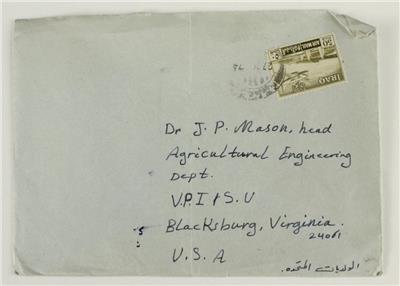 50
AIR MAIL
IRAQ
Dr J. P. Mason, head
Agricultural Engineering
Dept.
V.P.I & S.U
Blacksburg, Virginia.
24061
U.S.A
الولايات المتحدة.